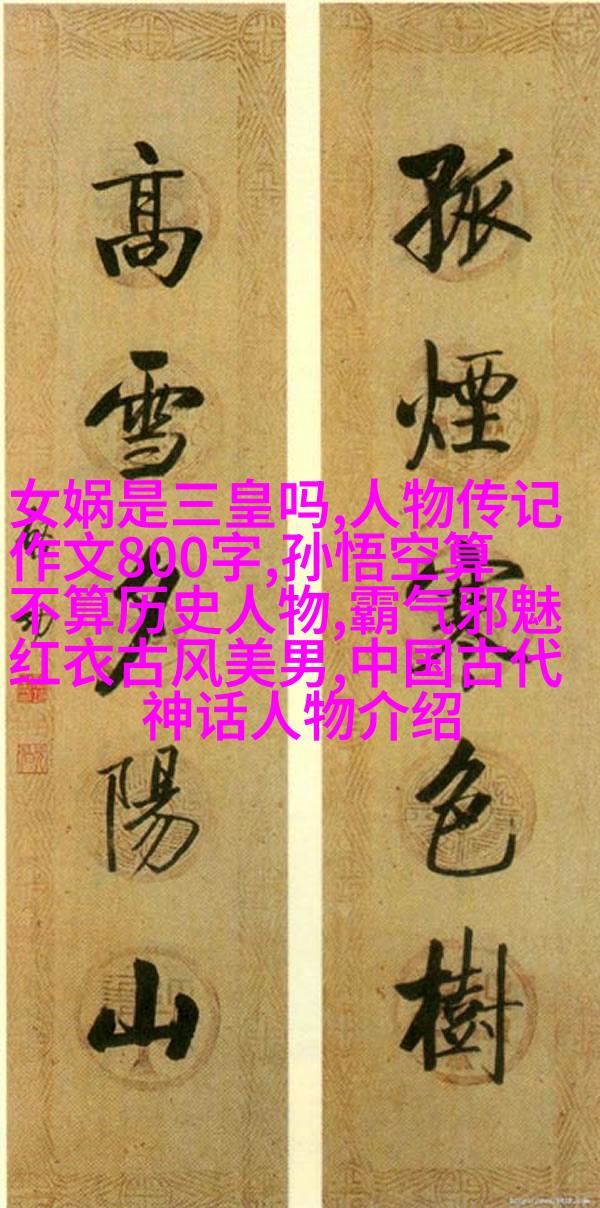 孤煙寒色樹
高雪夕陽山
啟功
女娲是三皇吗,人物传记
作文800字,孙悟空算
不算历史人物,霸气邪魅
红衣古风美男,中国古代
神话人物介绍